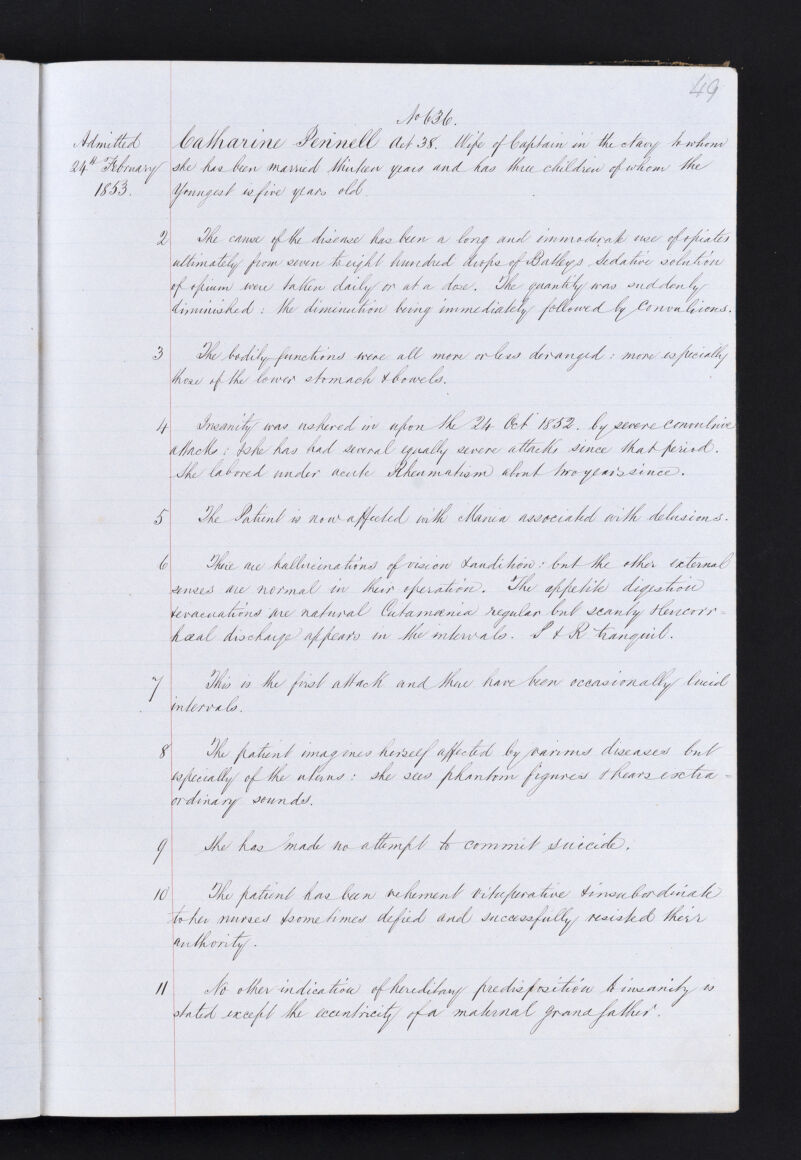 49
No 636.
Admitted
24th February
1853.
Catharine Pennell Aet 38. Wife of Captain in the Navy to whom
she has been married thirteen years and has three children of whom the
Youngest is five years old.
2 The cause of the disease has been a long and immoderate use of opiates
ultimately from seven to eight hundred drops of Batleys Sedative solution
of opium were taken daily or at a dose. The quantity was suddenly
diminished: the diminution being immediately followed by Convulsions.
3 The bodily functions were all more or less deranged: more especially
those of the lower stomach & bowels.
4 Insanity was ushered in upon the 24 Oct 1852. by severe convulsive
attacks: & she has had several equally severe attacks since that period.
She labored under acute Rheumatism about two years since.
5 The Patient is now affected with Mania associated with delusions.
6 There are hallucinations of vision & audition: but the other external
senses are normal in their operation. The appetite digestion
& evacuations are natural Catamœnia regular but scanty &
discharge appears in the intervals. P & R tranquil.
7 This is the first attack and there have been occasionally lucid
intervals.
8 The patient imagenes herself affected by various diseases but
especially of the uterus: she sees phantom figures & hears extra=
ordinary sounds.
9 She has made no attempt to commit suicide.
10 The patient has been vehement vituperative & insubordinate
to her nurses & sometimes defied and successfully resisted their
authority.
11 No other indication of hereditary predisposition to insanity is
stated except the eccentricity of a maternal grandfather.